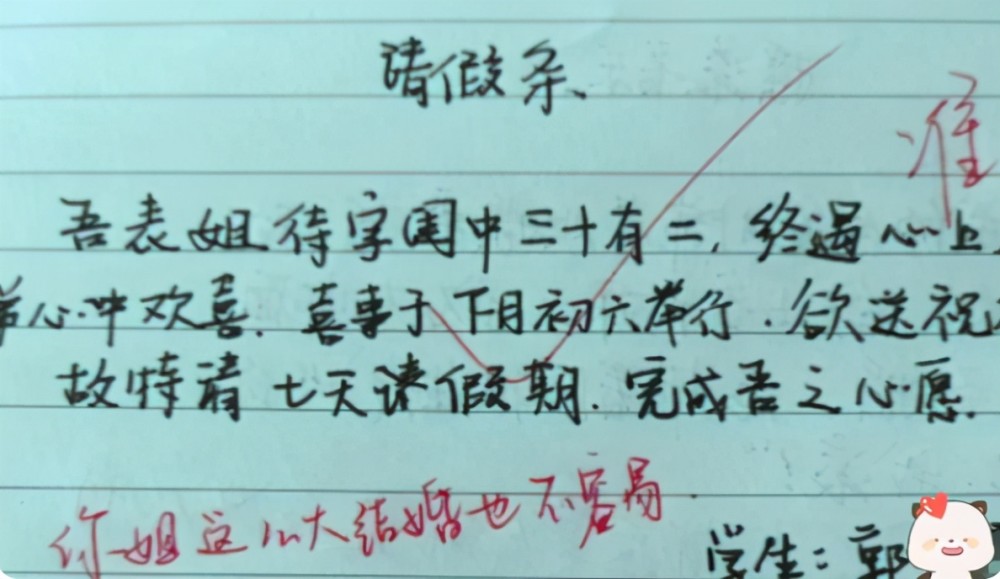 请假条
准
吾表姐待字闺中三十有二,终遇心上
心中欢喜.喜事于下月初六举行.欲送祝
故特请七天请假期.完成吾之心愿.
你姐这么大结婚也不容易.
学生:郭